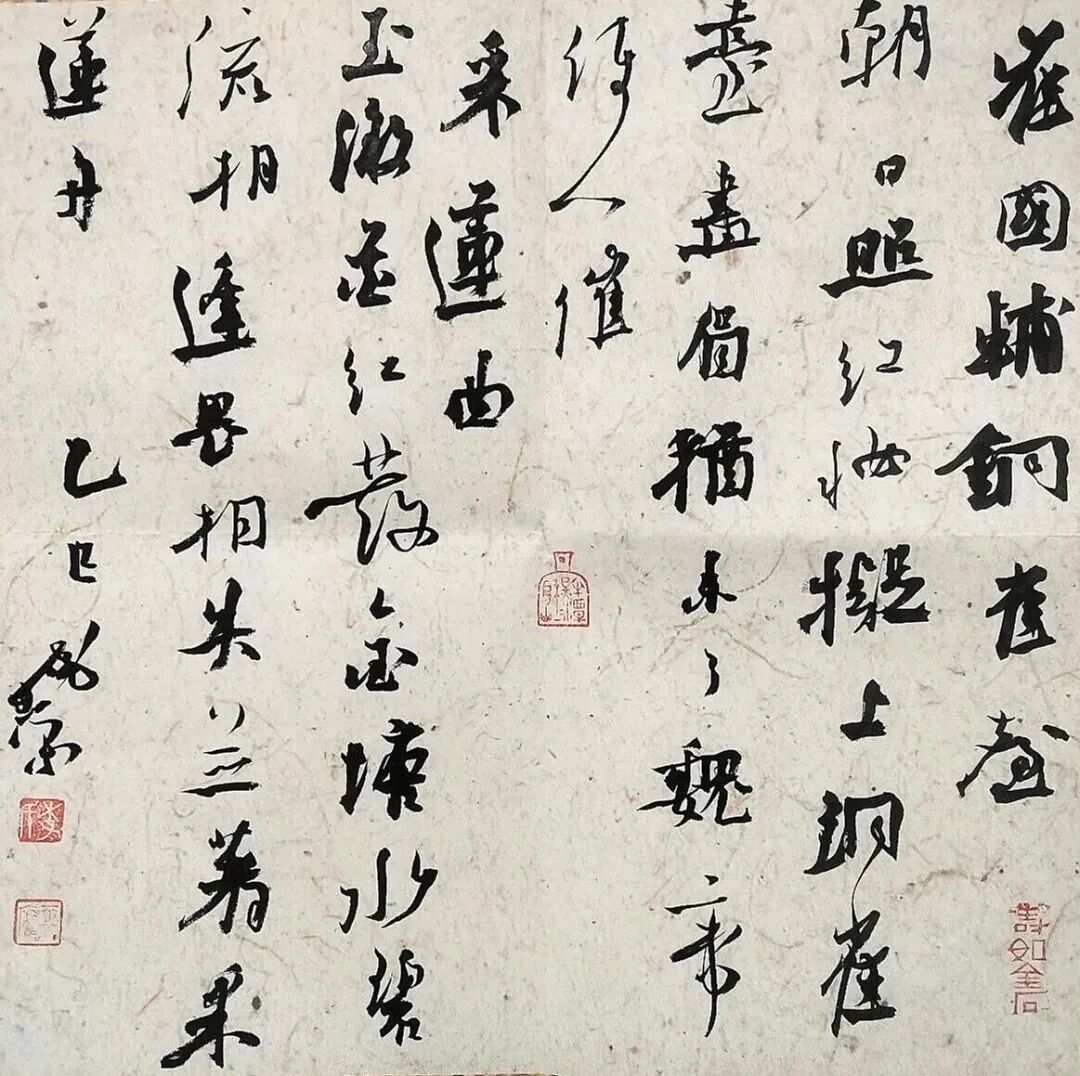 崔國輔銅雀臺
朝日照紅妝擬上銅雀
臺畫眉猶未了魏帝
使人催
采蓮曲
玉漵花紅發金塘水碧
流相逢畏相失並著采
蓮舟
乙巳
壽如金石